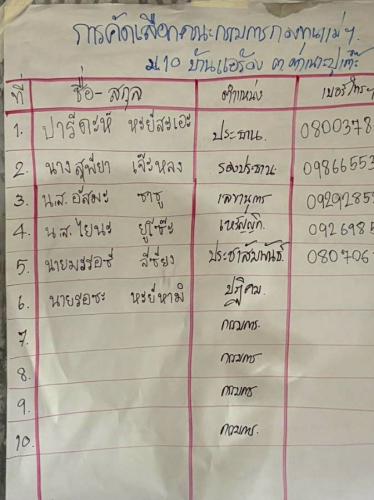 การคัดเลือกคณะกรรมการกองทุนแม่ฯ
ม.10 บ้านแอร้อง ต.
ที่ ชื่อ-สกุล ตำแหน่ง เบอร์โทรฯ
1. ปารีดะห์ หะยีสะเอะ ประธาน. 0800378
2. นางสุพียา เจ๊ะหลง รองประธาน. 09866553
3. น.ส. อัสมะ ซาซู เลขานุการ 0929285
4. น.ส. ไยนะ ยูโซ๊ะ เหรัญญิก. 0926985
5. ลีซียง ประชาสัมพันธ์. 080706
6. นายรอซะ หะยีหามิ ปฏิคม.
7. กรรมการ.
8. กรรมการ
9. กรรมการ
10. กรรมการ.